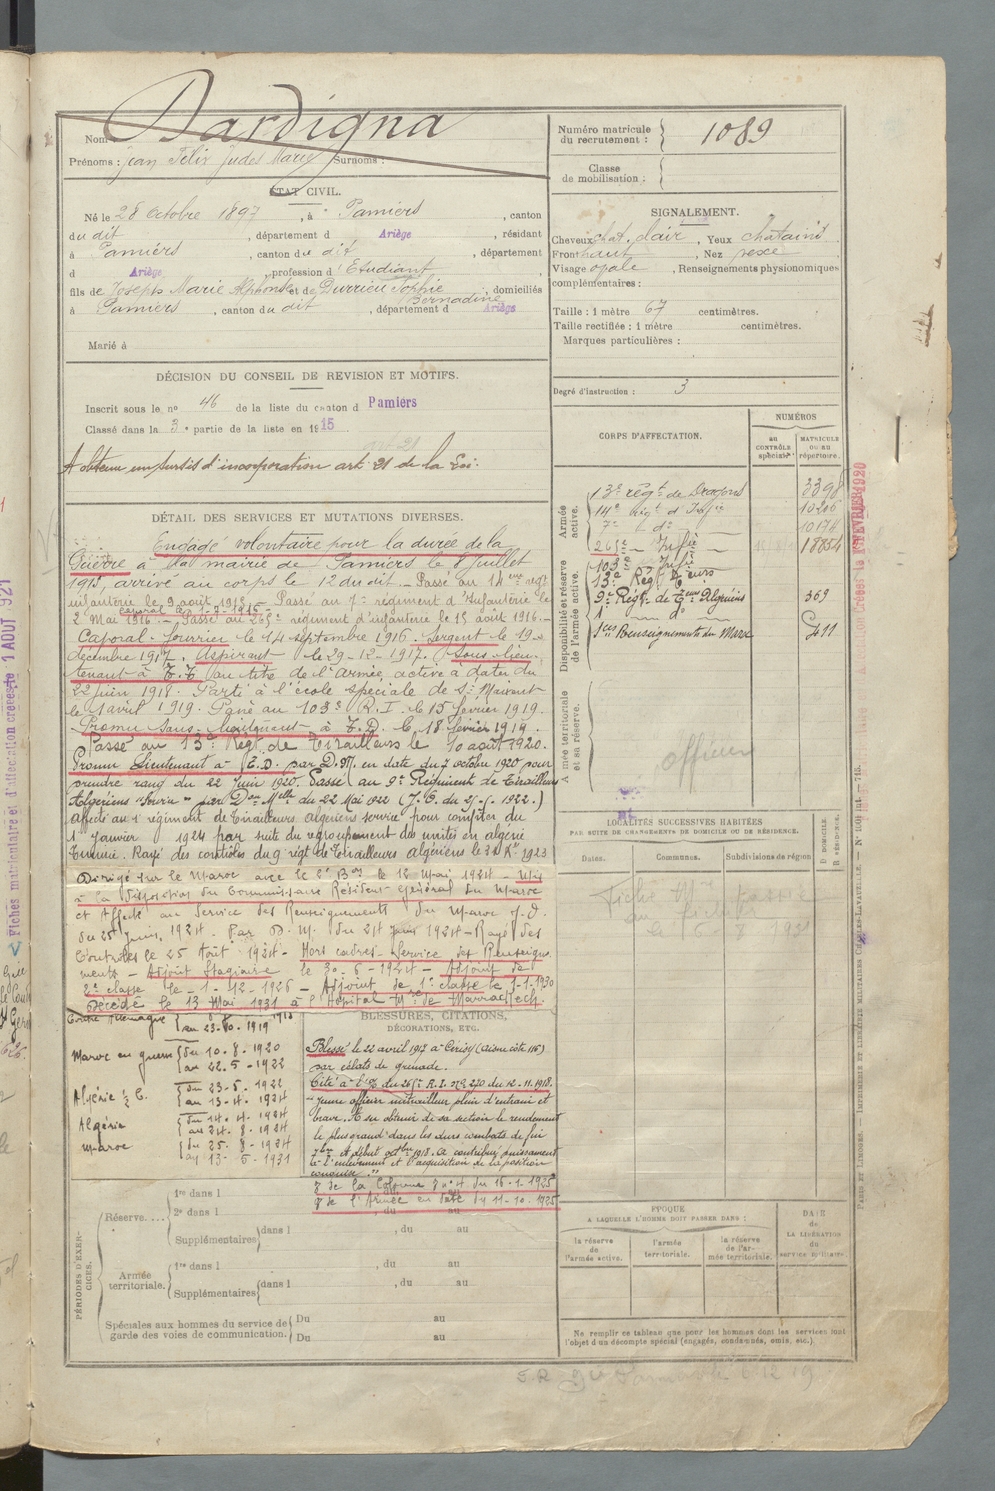 Nom : Dardigna
Prénoms : Jean Félix Judes Marie Surnoms :
Numéro matricule du recrutement : 1089
Classe de mobilisation :
ÉTAT CIVIL.
Né le 28 Octobre 1897, à Pamiers, canton
du dit, département d Ariège, résidant
à Pamiers, canton du dit, département
d Ariège, profession d'Etudiant
fils de Joseph Marie Alphonse et de Durrieu Sophie Bernadine, domiciliés
à Pamiers, canton du dit, département d Ariège
Marié à
SIGNALEMENT.
Cheveux chat. clair, Yeux chatains
Front haut, Nez
Visage ovale, Renseignements physionomiques
complémentaires :
Taille : 1 mètre 67 centimètres.
Taille rectifiée : 1 mètre centimètres.
Marques particulières :
Degré d'instruction : 3
DÉCISION DU CONSEIL DE REVISION ET MOTIFS.
Inscrit sous le no 46 de la liste du canton d Pamiers
Classé dans la 3e partie de la liste en 1915
art 21
A obtenu un sursis d'incorporation art. 21 de la Loi.
DÉTAIL DES SERVICES ET MUTATIONS DIVERSES.
Engagé volontaire pour la durée de la
Guerre à la mairie de Pamiers le 8 Juillet
1915, arrivé au corps le 12 du dit _ Passé au 14me régt
infanterie le 9 août 1915 _ Passé au 7e régiment d'Infanterie le
caporal le
2 Mai 1916. _ Passé au 265e régiment d'infanterie le 15 août 1916. _
Caporal-fourrier le 14 septembre 1916. Sergent le 19
décembre 1917. Aspirant le 29-12-1917. Sous-lieu-
tenant à T.T. au titre de l'armée active à dater du
22 juin 1918. Parti à l'école spéciale de St Maixent
le 1 avril 1919. Passé au 103e R.I. le 15 février 1919.
Promu Sous-lieutenant à T.D. le 18 février 1919.
Passé au 13e Régt de Tirailleurs le 10 août 1920.
Promu Lieutenant à T.D. par D.M. en date du 7 octobre 1920 pour
prendre rang du 22 Juin 1920. Passé au 9e Régiment de Tirailleurs
Algériens par Don Mlle du 22 Mai 1922
affecté au 1 régiment de Tirailleurs algériens service pour compter du
1 Janvier 1924 par suite du regroupement des unités en algérie
Tunisie. Rayé des contrôles du 9 régt de Tirailleurs algériens le 31 Xre 1923
Dirigé sur le Maroc avec le 2e Bon le 12 Mai 1924 - Mis
à la disposition du Commissaire Résident Général du Maroc
et Affecté au Service des Renseignements du Maroc J.O.
du 25 Juin 1924. Par D.M. du 24 Juin 1924 - Rayé des
Contrôles le 25 Août 1924 - Hors cadres - Service des Renseigne-
ments - Adjoint Stagiaire le 30-6-1924 - Adjoint de
2e classe le 1-12-1926 - Adjoint de 1e classe le 1-1-1930
Décédé le 13 Mai 1931 à l'Hôpital Mre de Marrakech.
Contre Allemagne
au 23-10-1919
Maroc en guerre { du 10.8.1920
au 22.5-1922
Algérie { du 23-5.1922
au 13-4.1924
Algérie { du 14.4.1924
au 24.8-1924
Maroc { du 25.8-1924
au 13-5-1931
BLESSURES, CITATIONS, DÉCORATIONS, ETC.
Blessé le 22 avril 1917 à Cerisy (Aisne côte 116)
par éclats de grenade.
Cité à l'O. du 265e R.I. no 270 du 12.11.1918.
Jeune officier mitrailleur plein d'entrain et
brave. A su obtenir de sa section le rendement
le plus grand dans les durs combats de fin
7bre et début octbre 1918. A contribué puissamment
à l'enlèvement et l'acquisition de la position
conquise "
O de la Colonne no 4 du 16-1-1925
O de l'Armée en date du 11-10.1925
CORPS D'AFFECTATION.
NUMÉROS
au CONTRÔLE spécial.
MATRICULE OU AU répertoire.
Armée active.
13e régt de Dragons 3398
14e Régt d'Inffie 10206
7e do 10174
265e Inffie 18854
Disponibilité et réserve de l'armée active.
103e Inffie
13e Régt Teurs
9e Régt de Teurs Algériens 369
1 do
Sces Renseignements du Maroc 411
Armée territoriale et sa réserve.
officier
LOCALITÉS SUCCESSIVES HABITÉES
PAR SUITE DE CHANGEMENTS DE DOMICILE OU DE RÉSIDENCE.
Dates. Communes. Subdivisions de région D DOMICILE R RÉSIDENCE.
PÉRIODES D'EXERCICES.
Réserve.... 1re dans l
2e dans l, du au
Supplémentaires dans l, du au
Armée territoriale. 1re dans l, du au
Supplémentaires dans l, du au
Spéciales aux hommes du service de garde des voies de communication. Du au
Du au
ÉPOQUE
A LAQUELLE L'HOMME DOIT PASSER DANS :
la réserve de l'armée active.
l'armée territoriale.
la réserve de l'armée territoriale.
DATE de LA LIBÉRATION du service militaire.
Ne remplir ce tableau que pour les hommes dont les services font
l'objet d'un décompte spécial (engagés, condamnés, omis, etc.).
PARIS ET LIMOGES. — IMPRIMERIE ET LIBRAIRIE MILITAIRES CHARLES-LAVAUZELLE.
Fiches matriculaire et d'affectation créées le 1 AOUT 1921